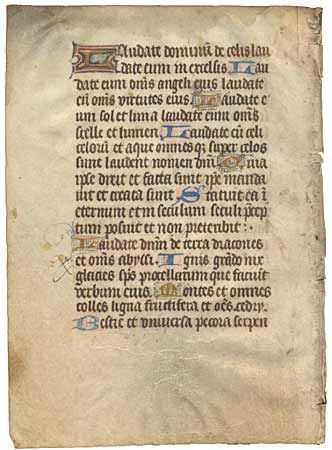 Laudate dominū de celis lau
date eum in excelsis Lau
date eum om̄s angli eius laudate
eū om̄s virtutes eius Laudate e
um sol et luna laudate eum om̄s
stelle et lumen Laudate eū celi
celorū et aque omnes que super celos
sunt laudent nomen dn̄i Quia
ipse dixit et facta sunt ipe manda
uit et creata sunt Statuit ea ī
eternum et in seculum seculi precep
tum posuit et non preteribit :
Laudate dn̄m de terra dracones
et om̄s abyssi Ignis grādo nix
glacies sp̄s procellarum que faciunt
verbum eius Montes et omnes
colles ligna fructifera et oēs cedry
Bestie et vniuersa pecora serpen